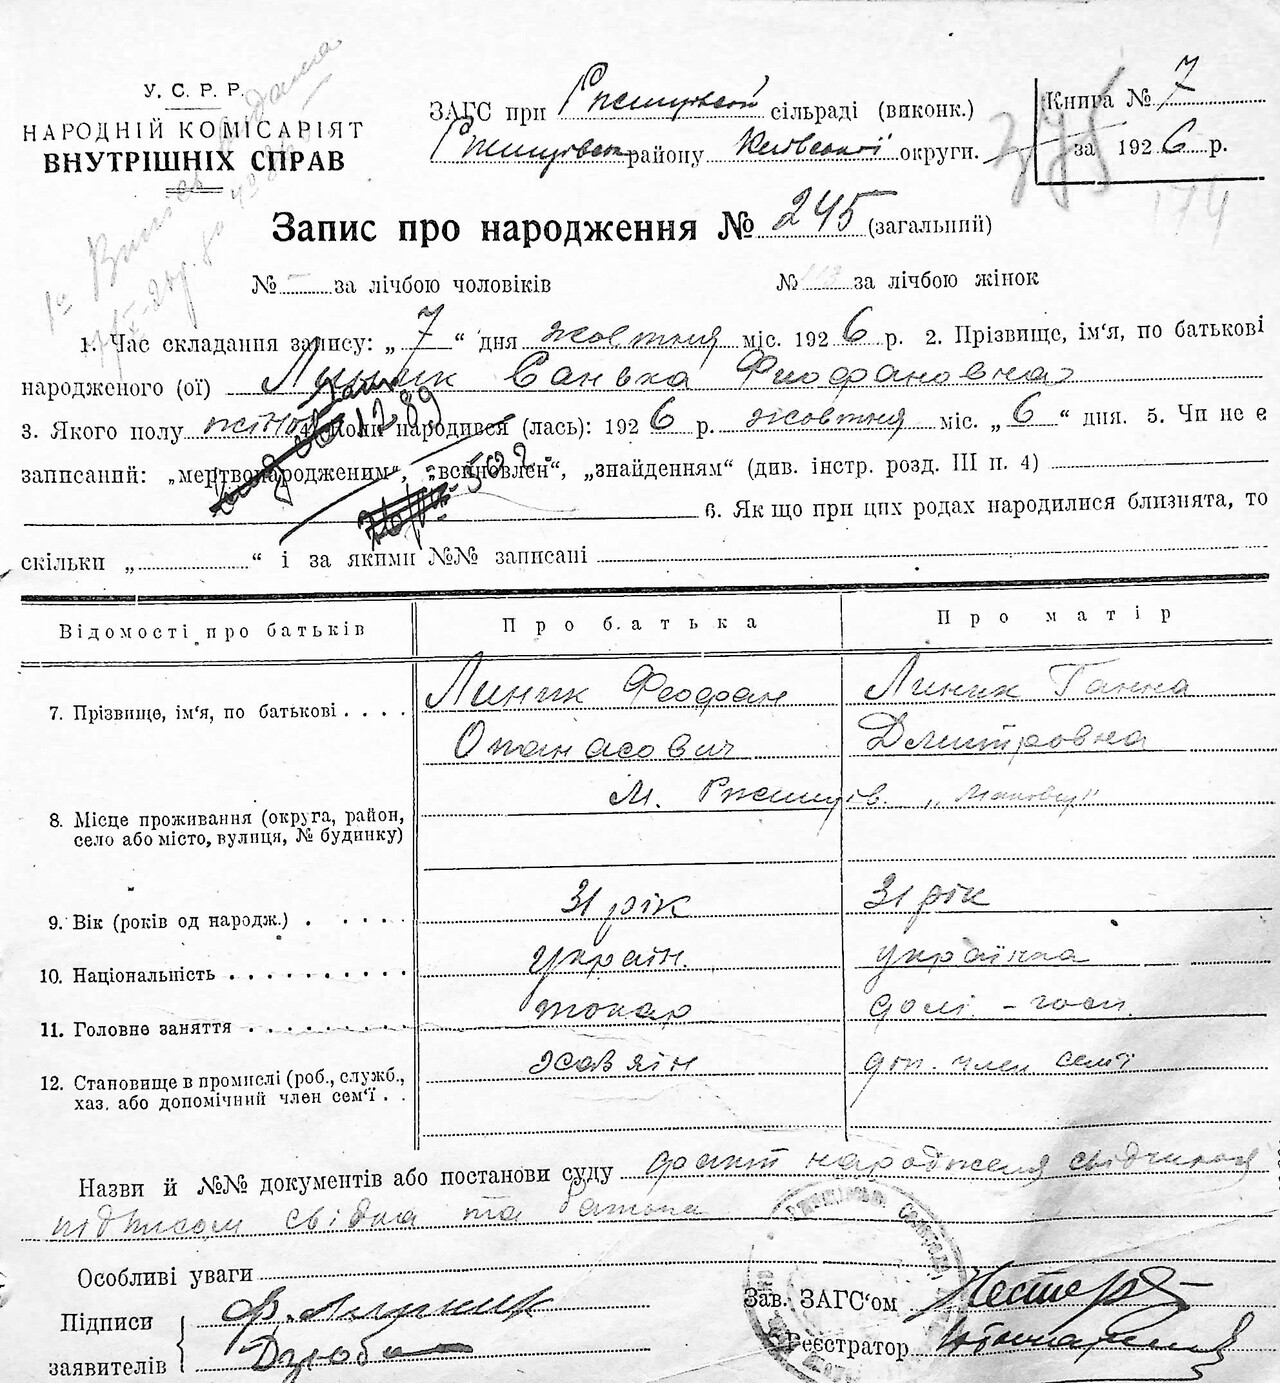 У. С. Р. Р.
НАРОДНІЙ КОМІСАРІЯТ
ВНУТРІШНІХ СПРАВ
ЗАГС при Ржищівській сільраді (виконк.)
Ржищівськ району Київської округи.
Книга № 7
за 1926 р.
174
Запис про народження № 245 (загальний)
№ — за лічбою чоловіків № 118 за лічбою жінок
1. Час складання запису: „ 7 “ дня жовтня міс. 1926 р. 2. Прізвище, ім‘я, по батькові
народженого (ої) Линик Санька Феофановна
3. Якого полу жіноч 4. Коли народився (лась): 1926 р. жовтня міс. „ 6 “ дня. 5. Чи не є
записаний: „мертвонародженим“, „всиновлен“, „знайденням“ (див. інстр. розд. III п. 4)
6. Як що при цих родах народилися близнята, то
скільки „ “ і за якими №№ записані
Відомості про батьків Про батька Про матір
7. Прізвище, ім‘я, по батькові Линик Феофан Линик Ганна
Опанасович Дмитровна
8. Місце проживання (округа, район, село або місто, вулиця, № будинку) м. Ржищів.
9. Вік (років од народж.) 31 рік 31 рік
10. Національність україн. українка
11. Головне заняття токар дом. - госп.
12. Становище в промислі (роб., служб., хазяїн доп. член семї
хаз. або допомічний член сем‘ї
Назви й №№ документів або постанови суду факт народженя свідчиться
підписом свідка та батька
Особливі уваги
Підписи Ф. Линник
заявителів Дзюба
Зав. ЗАГС‘ом Нестер
Реєстратор